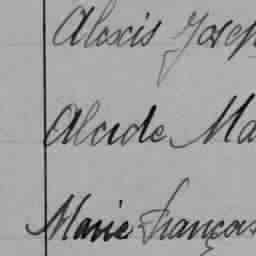 Alexis Josep
Alcide Ma
Marie François